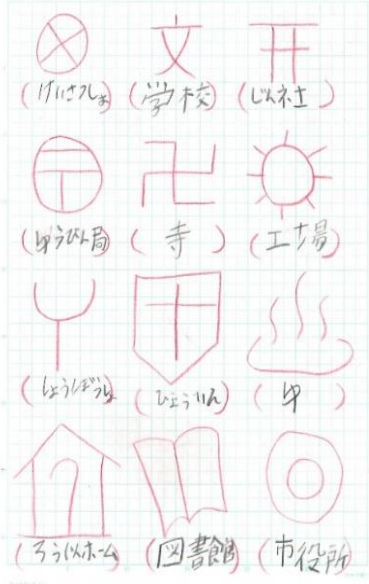 (けいさつしょ) (学校) (じんネ土)
(ゆうびん局) (寺) (工場)
(しょうぼうしょ) (びょういん) (ゆ)
(ろうじんホーム) (図書館) (市役所)